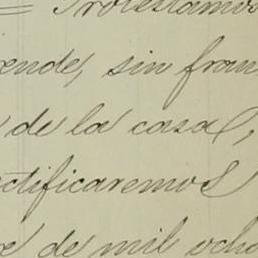 = Protestamos
ende, sin fran
de la casa,
ctificaremos
e de mil ocho